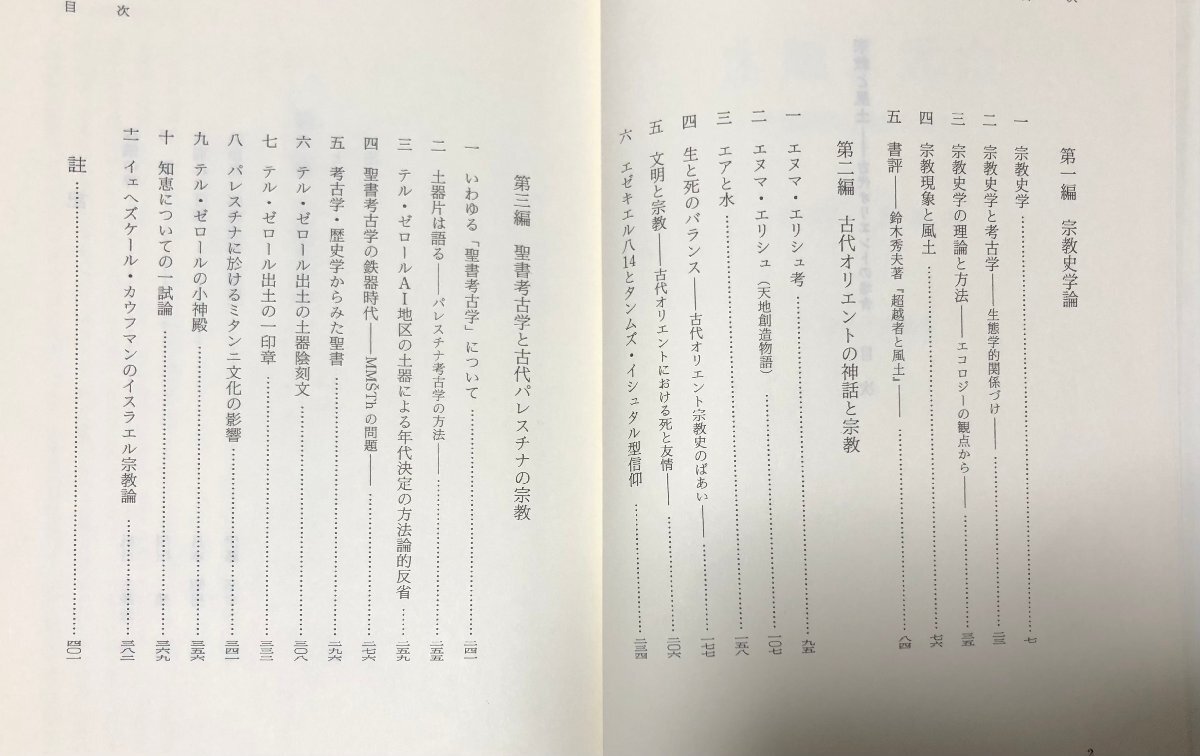 第一編　宗教史学論
一　宗教史学……七
二　宗教史学と考古学――生態学的関係づけ――……二三
三　宗教史学の理論と方法――エコロジーの観点から――……三五
四　宗教現象と風土……七六
五　書評――鈴木秀夫著『超越者と風土』――……八四
第二編　古代オリエントの神話と宗教
一　エヌマ・エリシュ考……九五
二　エヌマ・エリシュ（天地創造物語）……一〇七
三　エアと水……一五八
四　生と死のバランス――古代オリエント宗教史のばあい――……一七七
五　文明と宗教――古代オリエントにおける死と友情――……二〇六
六　エゼキエル八14とタンムズ・イシュタル型信仰……二三四
2
目次
第三編　聖書考古学と古代パレスチナの宗教
一　いわゆる「聖書考古学」について……二四一
二　土器片は語る――パレスチナ考古学の方法――……二五五
三　テル・ゼロールAI地区の土器による年代決定の方法論的反省……二五九
四　聖書考古学の鉄器時代――MMŠThの問題――……二七六
五　考古学・歴史学からみた聖書……二九六
六　テル・ゼロール出土の土器陰刻文……三〇八
七　テル・ゼロール出土の一印章……三三三
八　パレスチナに於けるミタンニ文化の影響……三四一
九　テル・ゼロールの小神殿……三五六
十　知恵についての一試論……三六九
十一　イェヘズケール・カウフマンのイスラエル宗教論……三八二
註……四〇一